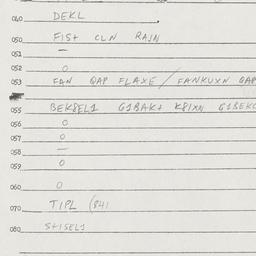 040 DEKL
050 FIS+ CLN RAIN
051 —
052 O
053 FAN QAP FLAXE / FANKUXN QAP
055 BEK8EL1 G1BAK+ K81XN G1BEKC
056 O
057 O
058 —
059 O
060 O
070 TIPL (841
080 S+1SEL1